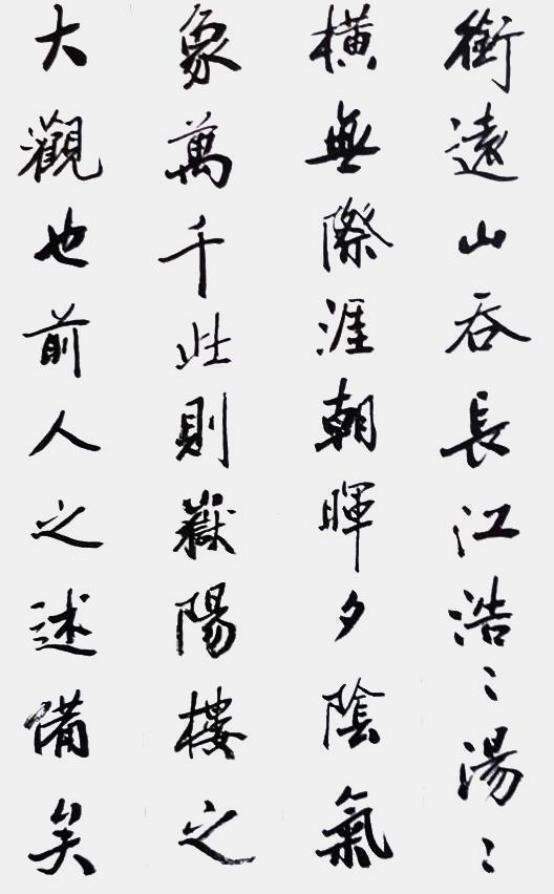 衔遠山吞長江浩〻湯〻
橫無際涯朝暉夕陰氣
象萬千此則嶽陽樓之
大觀也前人之述備矣